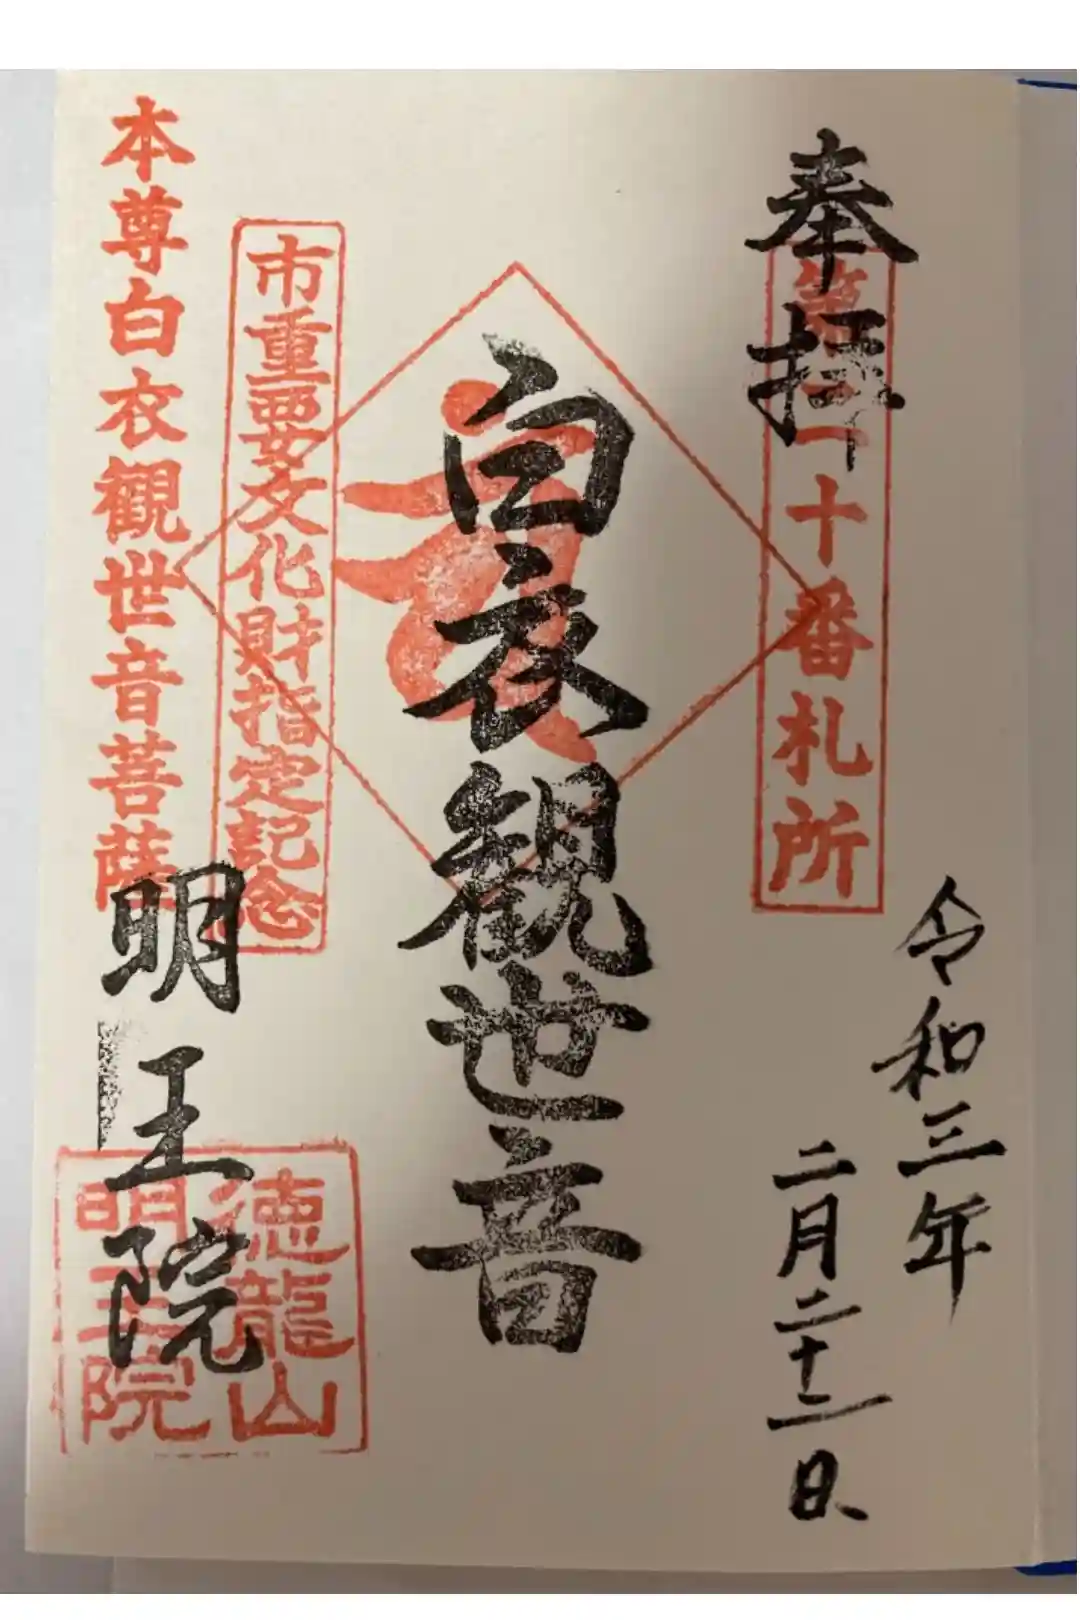 奉拝
第二十番札所
令和三年
二月二十二日
白衣観世音
市重要文化財指定記念
本尊白衣観世音菩薩
明王院
徳龍山
明王院